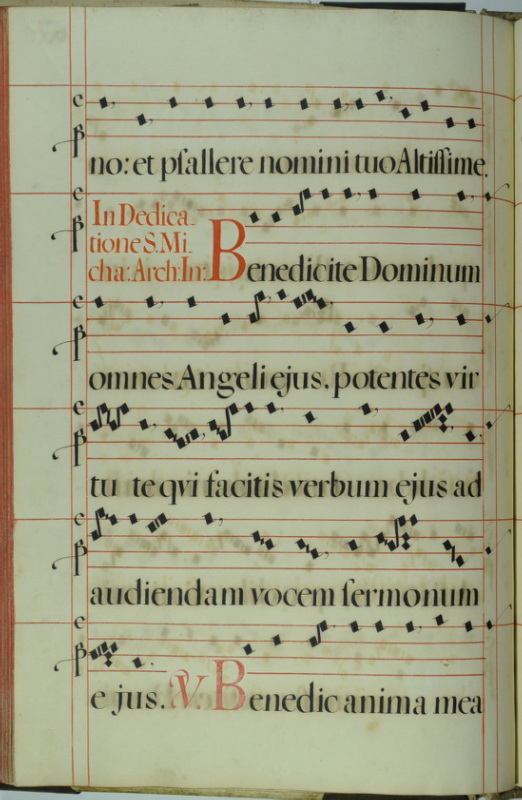 no: et pſallere nomini tuo Altiſſime.
In Dedica-
tione S. Mi-
cha: Arch: In:
Benedicite Dominum
omnes Angeli ejus. potentes vir
tu te qvi facitis verbum ejus ad
audiendam vocem ſermonum
e jus. V. Benedic anima mea